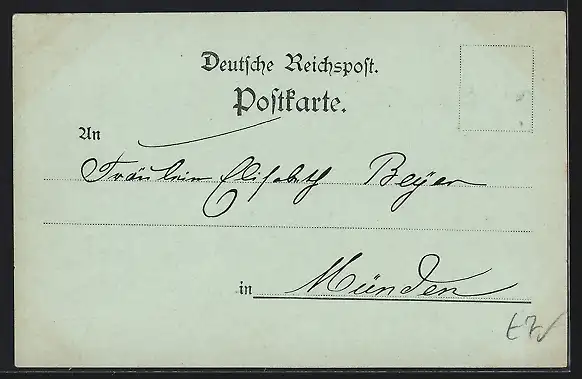 Deutsche Reichspost.
Postkarte.
An
Fräulein Elisabeth Beyer
in Münden